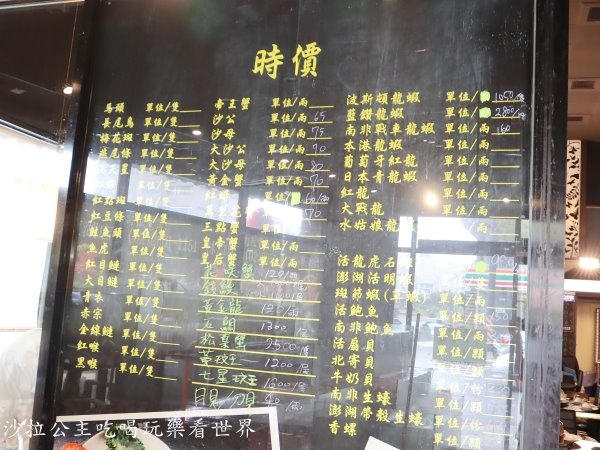 時價
馬頭 單位/隻
長尾鳥 單位/隻
梅花斑 單位/隻
燕尾條 單位/隻
單位/隻
單位/隻
紅點斑 單位/隻
紅豆條 單位/隻
鮭魚頭 單位/隻
魚虎 單位/隻
紅目鰱 單位/隻
大目鰱 單位/隻
青衣 單位/隻
赤宗 單位/隻
金線鰱 單位/隻
紅喉 單位/隻
黑喉 單位/隻
帝王蟹 單位/兩
沙公 單位/兩 65
沙母 單位/兩 75
大沙公 單位/兩 70
大沙母 單位/兩 80
黃金蟹 單位/兩 70
單位/
單位/兩 70
三點蟹 單位/兩
皇帝蟹 單位/兩
皇后蟹 單位/兩
120/
黃金龍 120/
1300
松葉蟹 2500/
黃斑 1200
七星斑 1600/
40
波斯頓龍蝦 單位/ 1050/
藍鑽龍蝦 單位/ 2800/
南非戰車龍蝦 單位/兩 160
本港龍蝦 單位/兩
葡萄牙紅龍 單位/兩
日本青龍蝦 單位/兩
紅龍 單位/兩
大戰龍 單位/兩
水姑娘龍蝦 單位/兩
活龍虎石 單位/
澎湖活明蝦 單位/
斑節蝦(草蝦) 單位/兩
活鮑魚 單位/
南非鮑魚 單位/兩
活扇貝 單位/顆
北寄貝 單位/顆
牛奶貝 單位/份
南非生蠔 單位/顆
澎湖帶殼生蠔 單位/份
香螺 單位/份
沙拉公主吃喝玩樂看世界